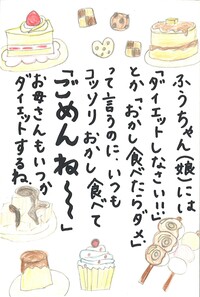 ふうちゃん(娘)には
「ダイエットしなさい!!」
とか「おかし食べたらダメ」
って言うのに、いつも
コッソリおかし食べて
「ごめんね〜〜」
お母さんもいつか
ダイエットするね。